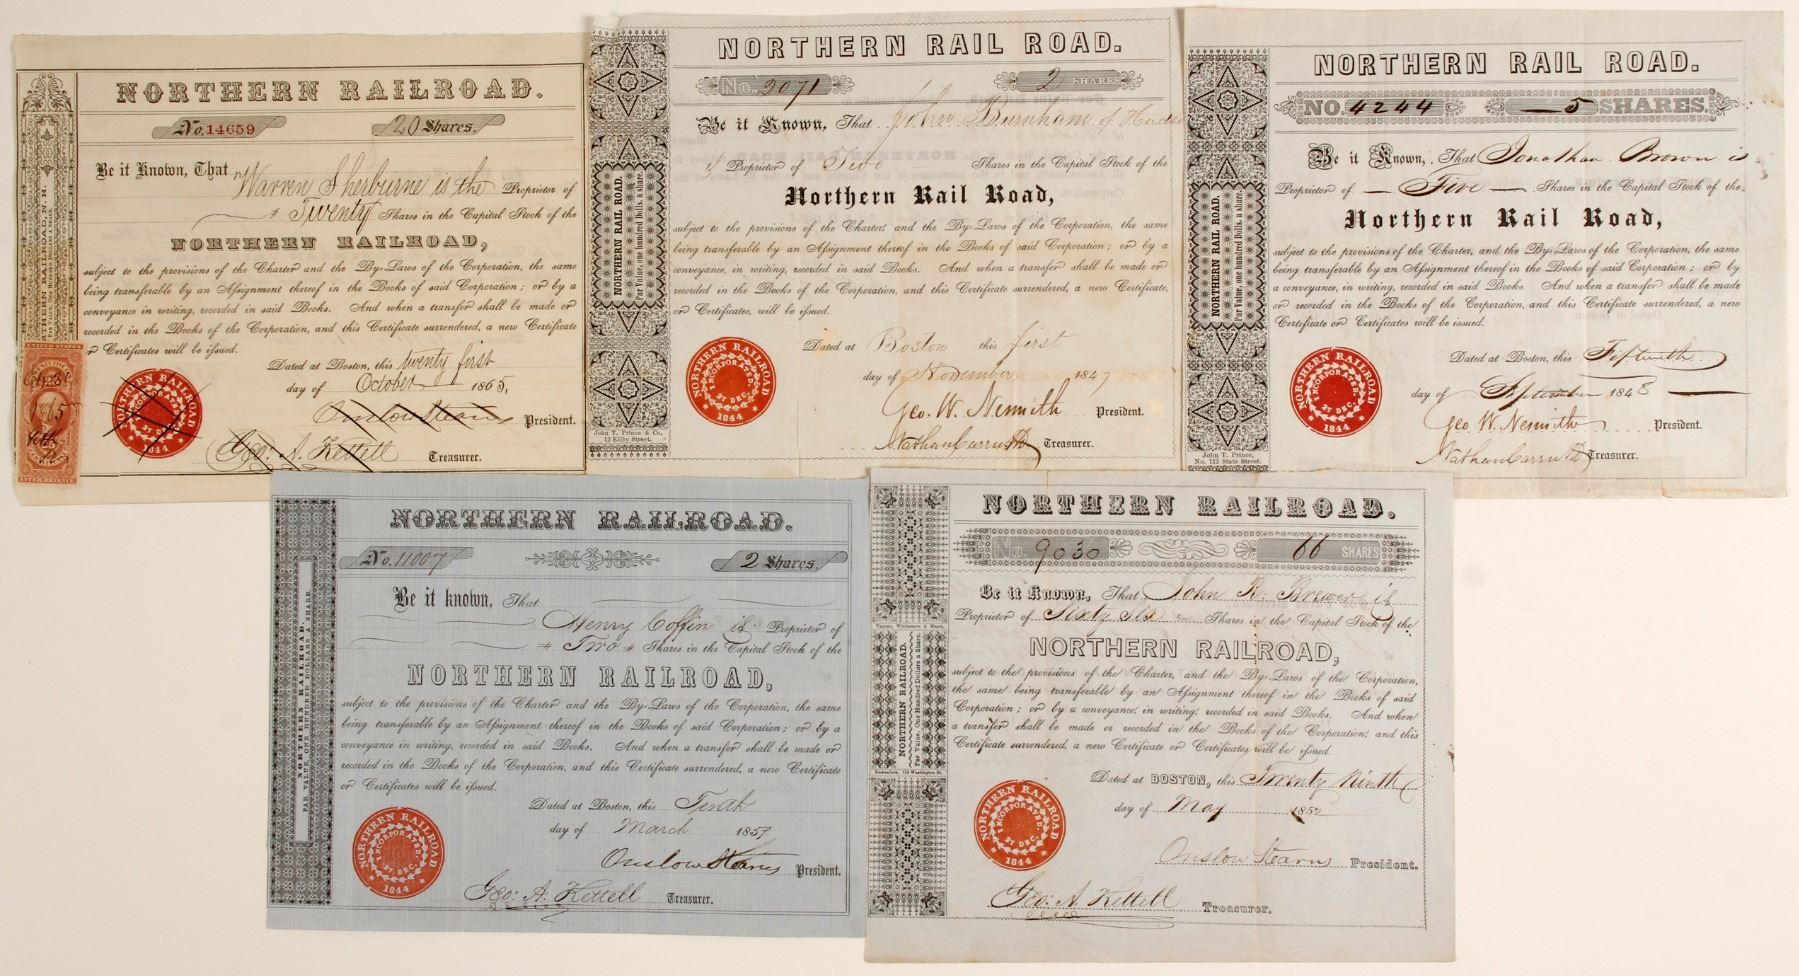 NORTHERN RAILROAD.
No. 14659 20 Shares.
Be it Known, That Warren Sherburne is the Proprietor of
Twenty Shares in the Capital Stock of the
NORTHERN RAILROAD,
subject to the provisions of the Charter and the By-Laws of the Corporation, the same
being transferable by an Assignment thereof in the Books of said Corporation; or by a
conveyance in writing, recorded in said Books. And when a transfer shall be made or
recorded in the Books of the Corporation, and this Certificate surrendered, a new Certificate
or Certificates will be issued.
Dated at Boston, this twenty first
day of October 1865,
Onslow Stearns President.
Geo: A. Kettell Treasurer.
NORTHERN RAILROAD
INCORPORATED
27 DEC.
1844
INTER. REVENUE
NORTHERN RAIL ROAD.
No. 2071 2 SHARES
Be it Known, That John Burnham of
Proprietor of Shares in the Capital Stock of the
Northern Rail Road,
subject to the provisions of the Charter, and the By-Laws of the Corporation, the same
being transferable by an Assignment thereof in the Books of said Corporation; or by a
conveyance, in writing, recorded in said Books. And when a transfer shall be made or
recorded in the Books of the Corporation, and this Certificate surrendered, a new Certificate,
or Certificates, will be issued.
Dated at Boston this first
day of November 1847
Geo. W. Nesmith President.
Nathan Carruth Treasurer.
NORTHERN RAIL ROAD.
Par Value, one hundred Dolls. a share.
John T. Prince & Co.
12 Kilby Street.
NORTHERN RAILROAD
INCORPORATED
27 DEC.
1844
NORTHERN RAIL ROAD.
NO. 4244 5 SHARES.
Be it Known, That Jonathan Brown is
Proprietor of Five Shares in the Capital Stock of the
Northern Rail Road,
subject to the provisions of the Charter, and the By-Laws of the Corporation, the same
being transferable by an Assignment thereof in the Books of said Corporation; or by
a conveyance, in writing, recorded in said Books. And when a transfer shall be made
or recorded in the Books of the Corporation, and this Certificate surrendered, a new
Certificate or Certificates will be issued.
Dated at Boston, this Fifteenth
day of September 1848
Geo. W. Nesmith President.
Nathan Carruth Treasurer.
NORTHERN RAIL ROAD.
Par Value, one hundred Dolls. a share.
John T. Prince,
No. 112 State Street.
NORTHERN RAILROAD
INCORPORATED
27 DEC.
1844
NORTHERN RAILROAD.
No. 11007 2 Shares.
Be it known, That
Henry Coffin is Proprietor of
Two Shares in the Capital Stock of the
NORTHERN RAILROAD,
subject to the provisions of the Charter and the By-Laws of the Corporation, the same
being transferable by an Assignment thereof in the Books of said Corporation; or by a
conveyance in writing, recorded in said Books. And when a transfer shall be made or
recorded in the Books of the Corporation, and this Certificate surrendered, a new Certificate
or Certificates will be issued.
Dated at Boston, this Tenth
day of March 1857
Onslow Stearns President.
Geo: A. Kettell Treasurer.
NORTHERN RAILROAD
PAR VALUE ONE HUNDRED DOLLARS A SHARE.
NORTHERN RAILROAD
INCORPORATED
27 DEC.
1844
NORTHERN RAILROAD.
No. 9030 66 SHARES
Be it Known, That John R. Brewer is
Proprietor of Sixty Six Shares in the Capital Stock of the
NORTHERN RAILROAD,
subject to the provisions of the Charter, and the By-Laws of the Corporation,
the same being transferable by an Assignment thereof in the Books of said
Corporation; or by a conveyance, in writing, recorded in said Books. And when
a transfer shall be made or recorded in the Books of the Corporation, and this
Certificate surrendered, a new Certificate or Certificates will be issued.
Dated at BOSTON, this Twenty Ninth
day of May 1852
Onslow Stearns President.
Geo: A. Kettell Treasurer.
NORTHERN RAILROAD.
Par Value, One Hundred Dollars a Share.
NORTHERN RAILROAD
INCORPORATED
27 DEC.
1844